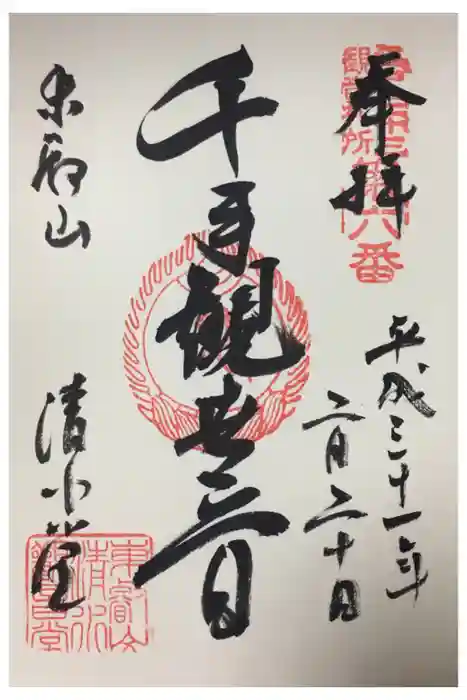 奉拝
観音札所
第六番
平成三十一年
二月二十日
千手観世音
東叡山
清水堂
東叡山
清水
観音堂